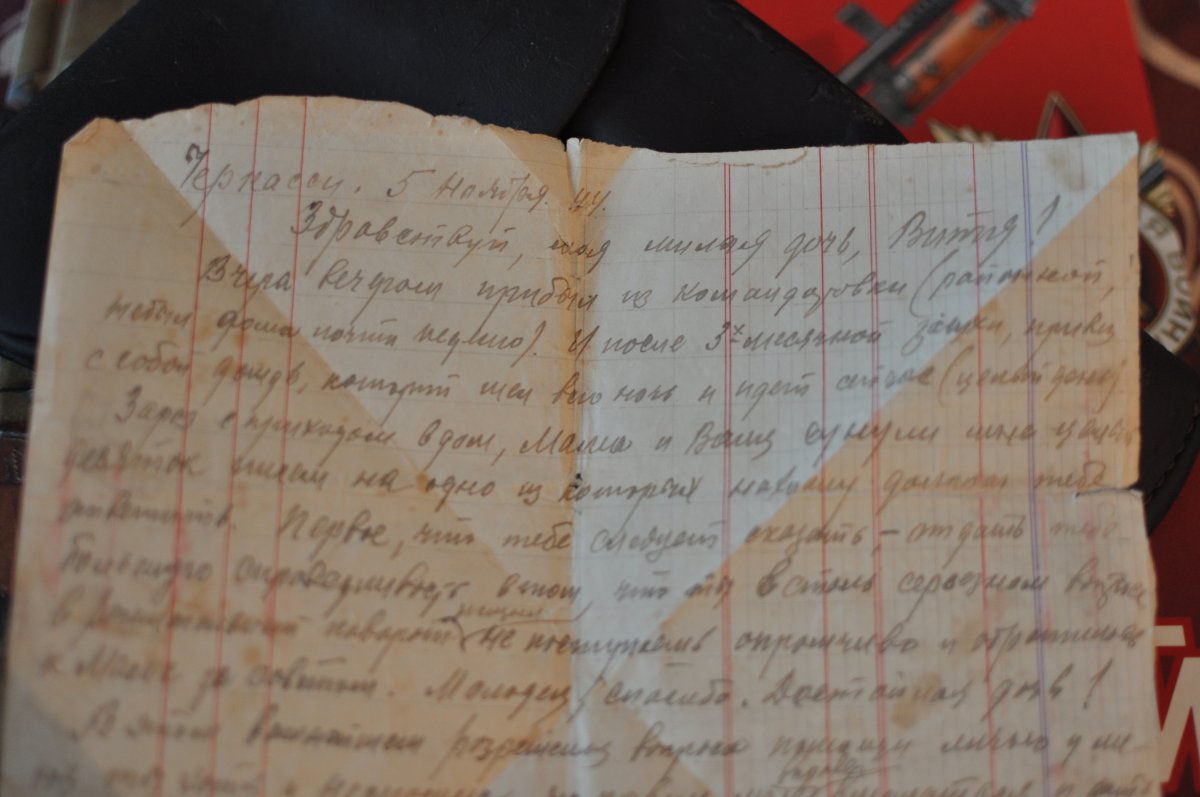 Черкассы. 5 ноября. 44.
Здравствуй, моя милая дочь, Витя!
Вчера вечером прибыл из командировки (районной,
небыл дома почти неделю). И после 3х месячной засухи, привез
с собой дождь, который шел всю ночь и идет сейчас (целый день)
Зараз с приходом в дом, Мама и Ваня сунули мне целый
десяток писем на одно из которых нахожу должным тебе
ответить. Первое, что тебе следует сказать, – отдать тебе
большую справедливость в том, что ты в столь серьезном вопросе
в решительный поворот жизни не поступаешь опрометчиво и обратилась
к Маме за советом. Молодец, спасибо. Достойная дочь!
В этом разрешении вопроса
ВОИН